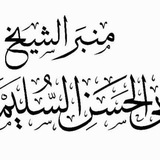 منبر الشيخ
الحسن السليم